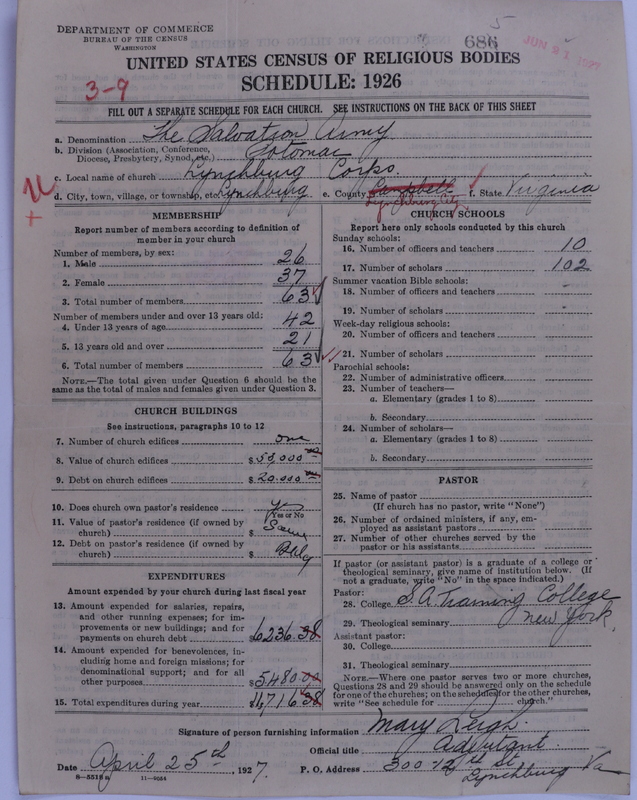 DEPARTMENT OF COMMERCE
BUREAU OF THE CENSUS
WASHINGTON
5
686
JUN 21 1927
UNITED STATES CENSUS OF RELIGIOUS BODIES
SCHEDULE: 1926
3-9
FILL OUT A SEPARATE SCHEDULE FOR EACH CHURCH. SEE INSTRUCTIONS ON THE BACK OF THIS SHEET
a. Denomination The Salvation Army
b. Division (Association, Conference, Diocese, Presbytery, Synod, etc.) Potomac
c. Local name of church Lynchburg Corps.
d. City, town, village, or township, etc. Lynchburg e. County Campbell Lynchburg City f. State Virginia
MEMBERSHIP
Report number of members according to definition of
member in your church
Number of members, by sex:
1. Male 26
2. Female 37
3. Total number of members 63
Number of members under and over 13 years old:
4. Under 13 years of age 42
5. 13 years old and over 21
6. Total number of members 63
NOTE.—The total given under Question 6 should be the
same as the total of males and females given under Question 3.
CHURCH BUILDINGS
See instructions, paragraphs 10 to 12
7. Number of church edifices one
8. Value of church edifices $50,000
9. Debt on church edifices $20.000
10. Does church own pastor's residence
Yes or No
11. Value of pastor's residence (if owned by
church) $ Same
12. Debt on pastor's residence (if owned by
church) $ Bldg
EXPENDITURES
Amount expended by your church during last fiscal year
13. Amount expended for salaries, repairs,
and other running expenses; for im-
provements or new buildings; and for
payments on church debt $6236.38
14. Amount expended for benevolences, in-
cluding home and foreign missions; for
denominational support; and for all
other purposes $5480.00
15. Total expenditures during year $11,716.38
CHURCH SCHOOLS
Report here only schools conducted by this church
Sunday schools:
16. Number of officers and teachers 10
17. Number of scholars 102
Summer vacation Bible schools:
18. Number of officers and teachers
19. Number of scholars
Week-day religious schools:
20. Number of officers and teachers
21. Number of scholars
Parochial schools:
22. Number of administrative officers
23. Number of teachers—
a. Elementary (grades 1 to 8)
b. Secondary
24. Number of scholars—
a. Elementary (grades 1 to 8)
b. Secondary
PASTOR
25. Name of pastor
(If church has no pastor, write "None")
26. Number of ordained ministers, if any, em-
ployed as assistant pastors
27. Number of other churches served by the
pastor or his assistants
If pastor (or assistant pastor) is a graduate of a college or
theological seminary, give name of institution below. (If
not a graduate, write "No" in the space indicated.)
Pastor:
28. College S.A. Training College
29. Theological seminary New York
Assistant pastor:
30. College
31. Theological seminary
NOTE.—Where one pastor serves two or more churches,
Questions 28 and 29 should be answered only on the schedule
for one of the churches; on the schedules for the other churches,
write "See schedule for church."
Signature of person furnishing information Mary Leigh
Official title Adjutant
Date April 25th, 1927. P. O. Address 300 12th St
Lynchburg Va
8-5518a 11-9084